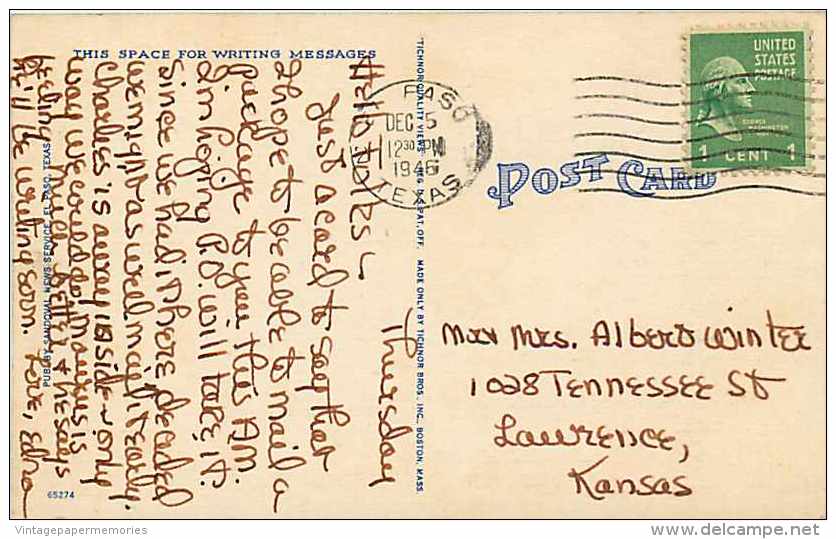 THIS SPACE FOR WRITING MESSAGES
Thursday
Hello Folks ~
Just a card to say that
I hope to be able to mail a
package to you this A.M.
I'm hoping P.O. will take it.
Since we had it here decided
we might as well mail it early.
Charles is away inside ~ only
way we could do. Maurus is
feeling much better & he says
he'll be writing soon. Love, Edna
65274
PUB. BY SANDOVAL NEWS SERVICE, EL PASO, TEXAS
"TICHNOR QUALITY VIEWS," REG. U. S. PAT. OFF. MADE ONLY BY TICHNOR BROS., INC., BOSTON, MASS.
PASO
DEC 5
12 30 PM
1946
TEXAS
UNITED
STATES
POSTAGE
GEORGE
WASHINGTON
1 CENT 1
POST CARD
Mr & Mrs. Albert Winter
1028 Tennessee St
Lawrence,
Kansas
Vintagepapermemories
delcampe.net